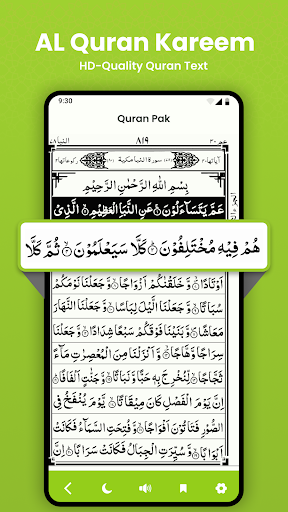 AL Quran Kareem
HD-Quality Quran Text
9:30
Quran Pak
النبا ٧٨
٨١٩
عم ٣٠
سورة النبا مكية
بِسْمِ اللّٰهِ الرَّحْمٰنِ الرَّحِيْمِ
عَمَّ يَتَسَآءَلُوْنَ ۞ عَنِ النَّبَاِ الْعَظِيْمِ ۞ الَّذِيْ
هُمْ فِيْهِ مُخْتَلِفُوْنَ ۞ كَلَّا سَيَعْلَمُوْنَ ۞ ثُمَّ كَلَّا
اَوْتَادًا ۞ وَّخَلَقْنٰكُمْ اَزْوَاجًا ۞ وَّجَعَلْنَا نَوْمَكُمْ
سُبَاتًا ۞ وَّجَعَلْنَا الَّيْلَ لِبَاسًا ۞ وَّجَعَلْنَا النَّهَارَ
مَعَاشًا ۞ وَّبَنَيْنَا فَوْقَكُمْ سَبْعًا شِدَادًا ۞ وَّجَعَلْنَا
سِرَاجًا وَّهَّاجًا ۞ وَّاَنْزَلْنَا مِنَ الْمُعْصِرٰتِ مَآءً
ثَجَّاجًا ۞ لِّنُخْرِجَ بِهٖ حَبًّا وَّنَبَاتًا ۞ وَّجَنّٰتٍ اَلْفَافًا ۞
اِنَّ يَوْمَ الْفَصْلِ كَانَ مِيْقَاتًا ۞ يَّوْمَ يُنْفَخُ فِي
الصُّوْرِ فَتَاْتُوْنَ اَفْوَاجًا ۞ وَّفُتِحَتِ السَّمَآءُ فَكَانَتْ
اَبْوَابًا ۞ وَّسُيِّرَتِ الْجِبَالُ فَكَانَتْ سَرَابًا ۞ اِنَّ